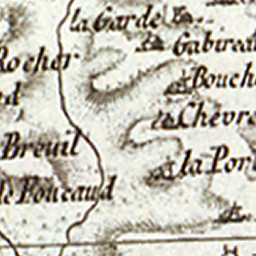 la Garde
Gabirea
Rocher
Bouch
Chevro
Breuil
la Por
le Foucaud